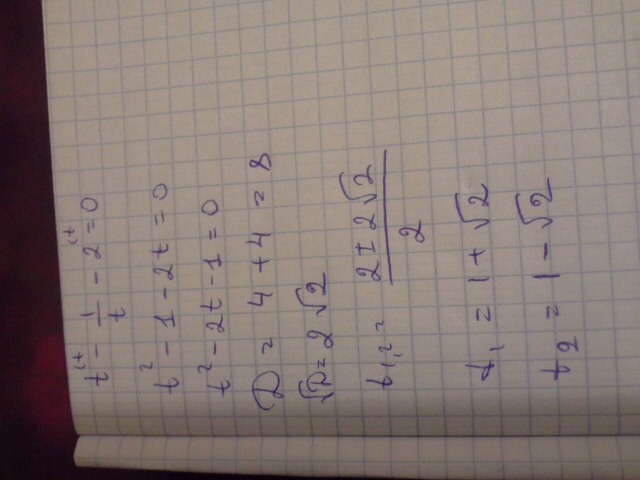 t^(t - 1/t - 2^(t = 0
t² - 1 - 2t = 0
t² - 2t - 1 = 0
D = 4 + 4 = 8
√D = 2√2
t₁,₂ = (2 ± 2√2)/2
t₁ = 1 + √2
t₂ = 1 - √2